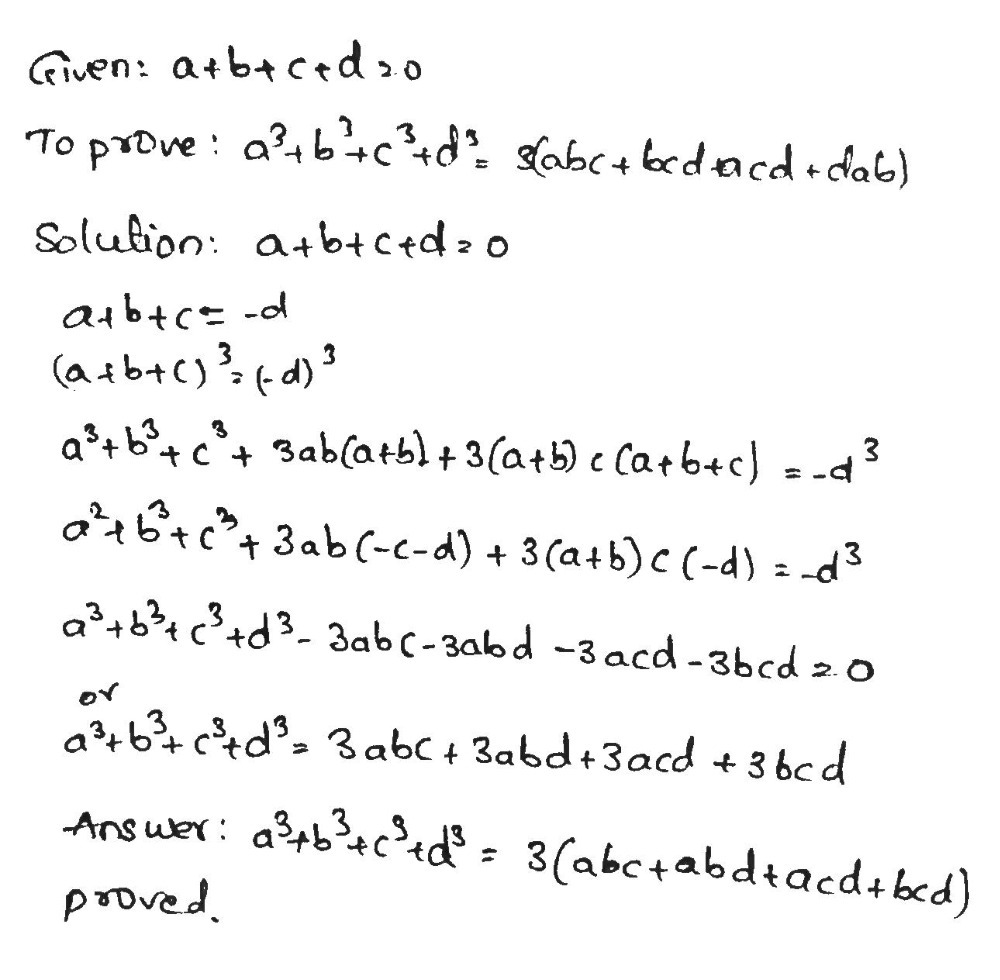 Given: a+b+c+d=0
To prove: a³+b³+c³+d³= 3(abc+bcd+acd+dab)
Solution: a+b+c+d=0
a+b+c= -d
(a+b+c)³=(-d)³
a³+b³+c³+ 3ab(a+b)+3(a+b)c(a+b+c) = -d³
a²+b³+c³+3ab(-c-d)+3(a+b)c(-d) = -d³
a³+b³+c³+d³-3abc-3abd-3acd-3bcd=0
or
a³+b³+c³+d³= 3abc+3abd+3acd+3bcd
Answer: a³+b³+c³+d³ = 3(abc+abd+acd+bcd)
proved.